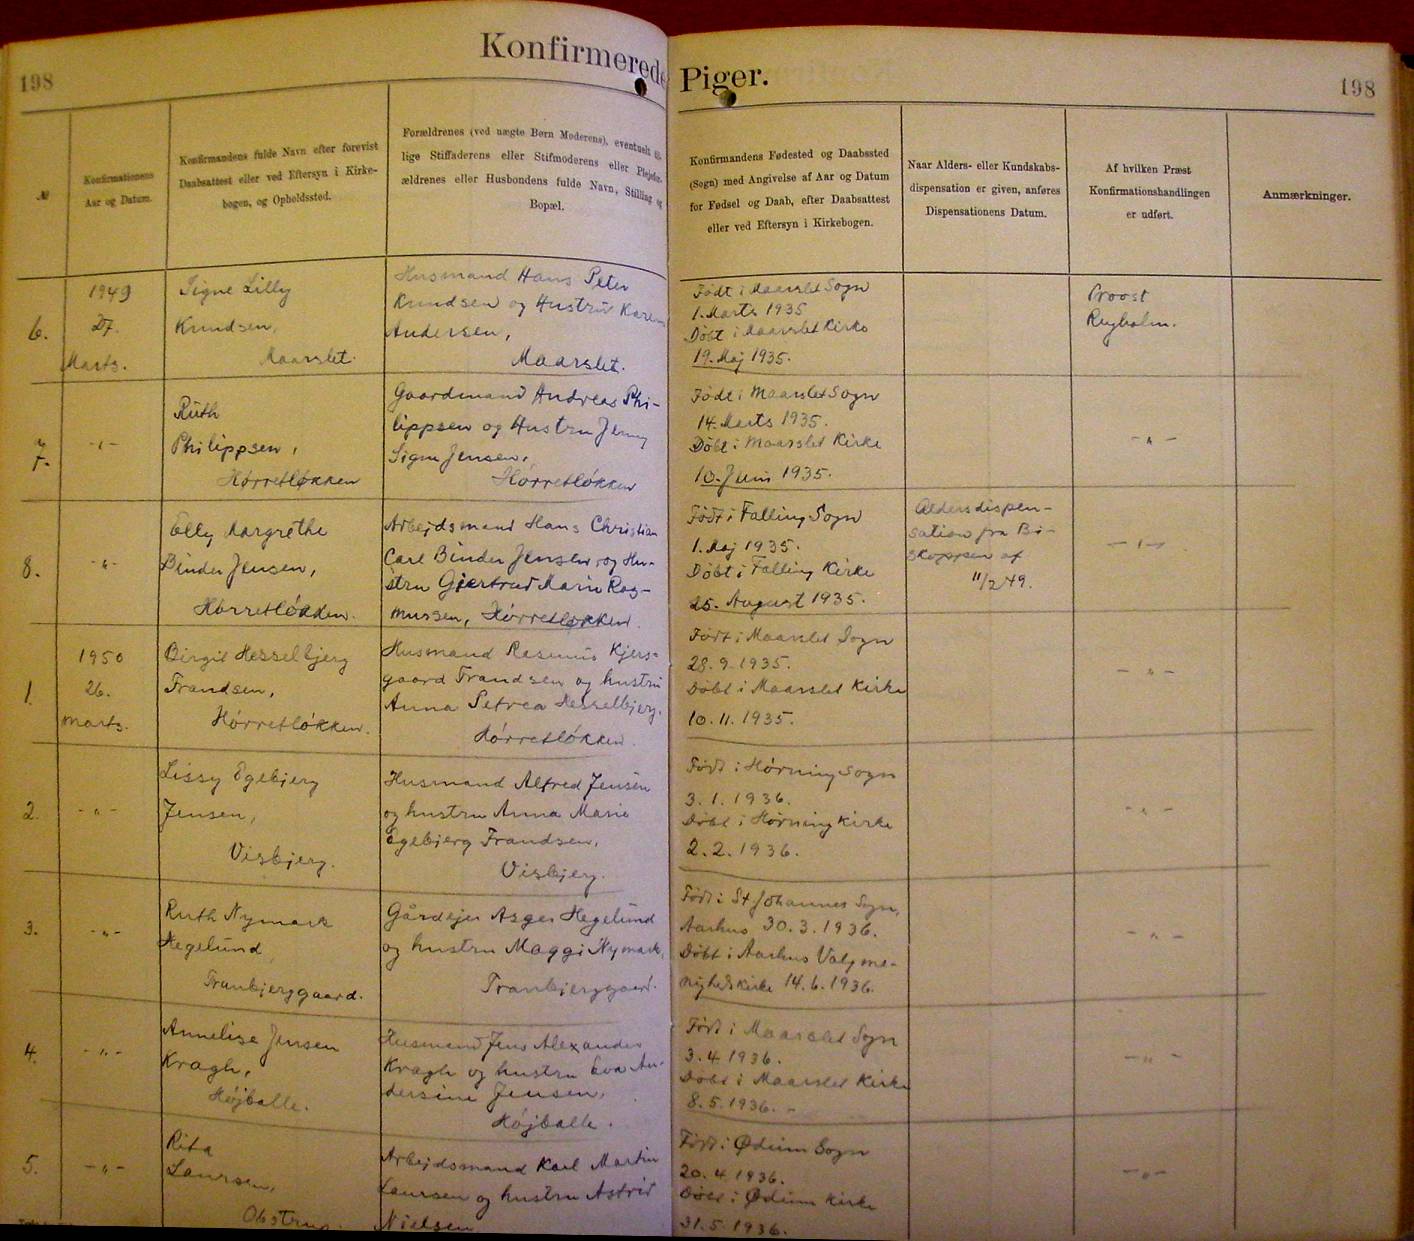 198
Konfirmerede Piger.
198
№
Konfirmationens
Aar og Datum.
Konfirmandens fulde Navn efter forevist
Daabsattest eller ved Eftersyn i Kirke-
bogen, og Opholdssted.
Forældrenes (ved uægte Børn Moderens), eventuelt til-
lige Stiffaderens eller Stifmoderens eller Plejefor-
ældrenes eller Husbondens fulde Navn, Stilling og
Bopæl.
Konfirmandens Fødested og Daabssted
(Sogn) med Angivelse af Aar og Datum
for Fødsel og Daab, efter Daabsattest
eller ved Eftersyn i Kirkebogen.
Naar Alders- eller Kundskabs-
dispensation er given, anføres
Dispensationens Datum.
Af hvilken Præst
Konfirmationshandlingen
er udført.
Anmærkninger.
6.
1949
27.
Marts.
Signe Lilly
Knudsen,
Maarslet.
Husmand Hans Peter
Knudsen og Hustru Karen
Andersen,
Maarslet.
Født i Maarslet Sogn
1. Marts 1935
Døbt i Maarslet Kirke
19. Maj 1935.
Provst
7.
-"-
Ruth
Philippsen,
Hørretløkken
Gaardmand Andreas Phi-
lippsen og Hustru Jenny
Signe Jensen,
Hørretløkken
Født i Maarslet Sogn
14. Marts 1935.
Døbt i Maarslet Kirke
10. Juni 1935.
-"-
8.
-"-
Elly Margrethe
Binder Jensen,
Hørretløkken.
Arbejdsmand Hans Christian
Carl Binder Jensen og Hu-
stru Gjertrud Marie Ras-
mussen, Hørretløkken.
Født i Falling Sogn
1. Maj 1935.
Døbt i Falling Kirke
25. August 1935.
Aldersdispen-
sation fra Bi-
skoppen af
11/2 49.
-"-
1.
1950
26.
marts.
Birgit Hesselbjerg
Frandsen,
Hørretløkken.
Husmand Rasmus Kjers-
gaard Frandsen og hustru
Anna Petrea Hesselbjerg.
Hørretløkken.
Født i Maarslet Sogn
28. 9. 1935.
Døbt i Maarslet Kirke
10. 11. 1935.
-"-
2.
-"-
Lissy Egebjerg
Jensen,
Visbjerg.
Husmand Alfred Jensen
og hustru Anna Marie
Egebjerg Frandsen,
Visbjerg.
Født i Hørning Sogn
3. 1. 1936.
Døbt i Hørning Kirke
2. 2. 1936.
-"-
3.
-"-
Ruth Nymark
Hegelund,
Tranbjerggaard.
Gårdejer Asger Hegelund
og hustru Maggi Nymark,
Tranbjerggaard.
Født i St Johannes Sogn,
Aarhus 30. 3. 1936.
Døbt i Aarhus Valgme-
nighedskirke 14. 6. 1936.
-"-
4.
-"-
Annelise Jensen
Kragh,
Højballe.
Husmand Jens Alexander
Kragh og hustru Eva An-
dersine Jensen,
Højballe.
Født i Maarslet Sogn
3. 4 1936.
Døbt i Maarslet Kirke
8. 5. 1936.
-"-
5.
-"-
Rita
Laursen,
Obstrup.
Arbejdsmand Karl Martin
Laursen og hustru Astrid
Nielsen
Født i Ødum Sogn
20. 4 1936.
Døbt i Ødum Kirke
31. 5. 1936.
-"-